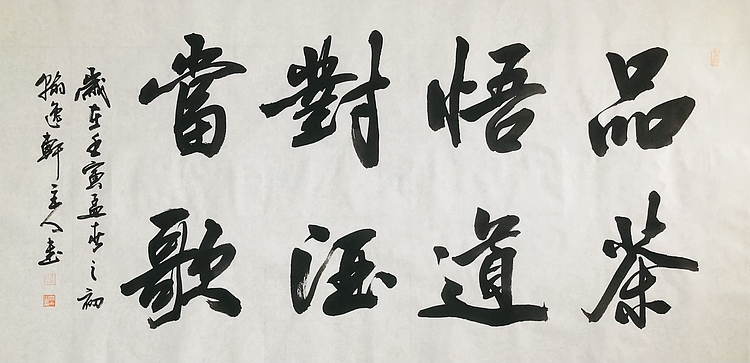 品茶
悟道
對酒
當歌
歲在壬寅孟春之初
翰逸軒主人書